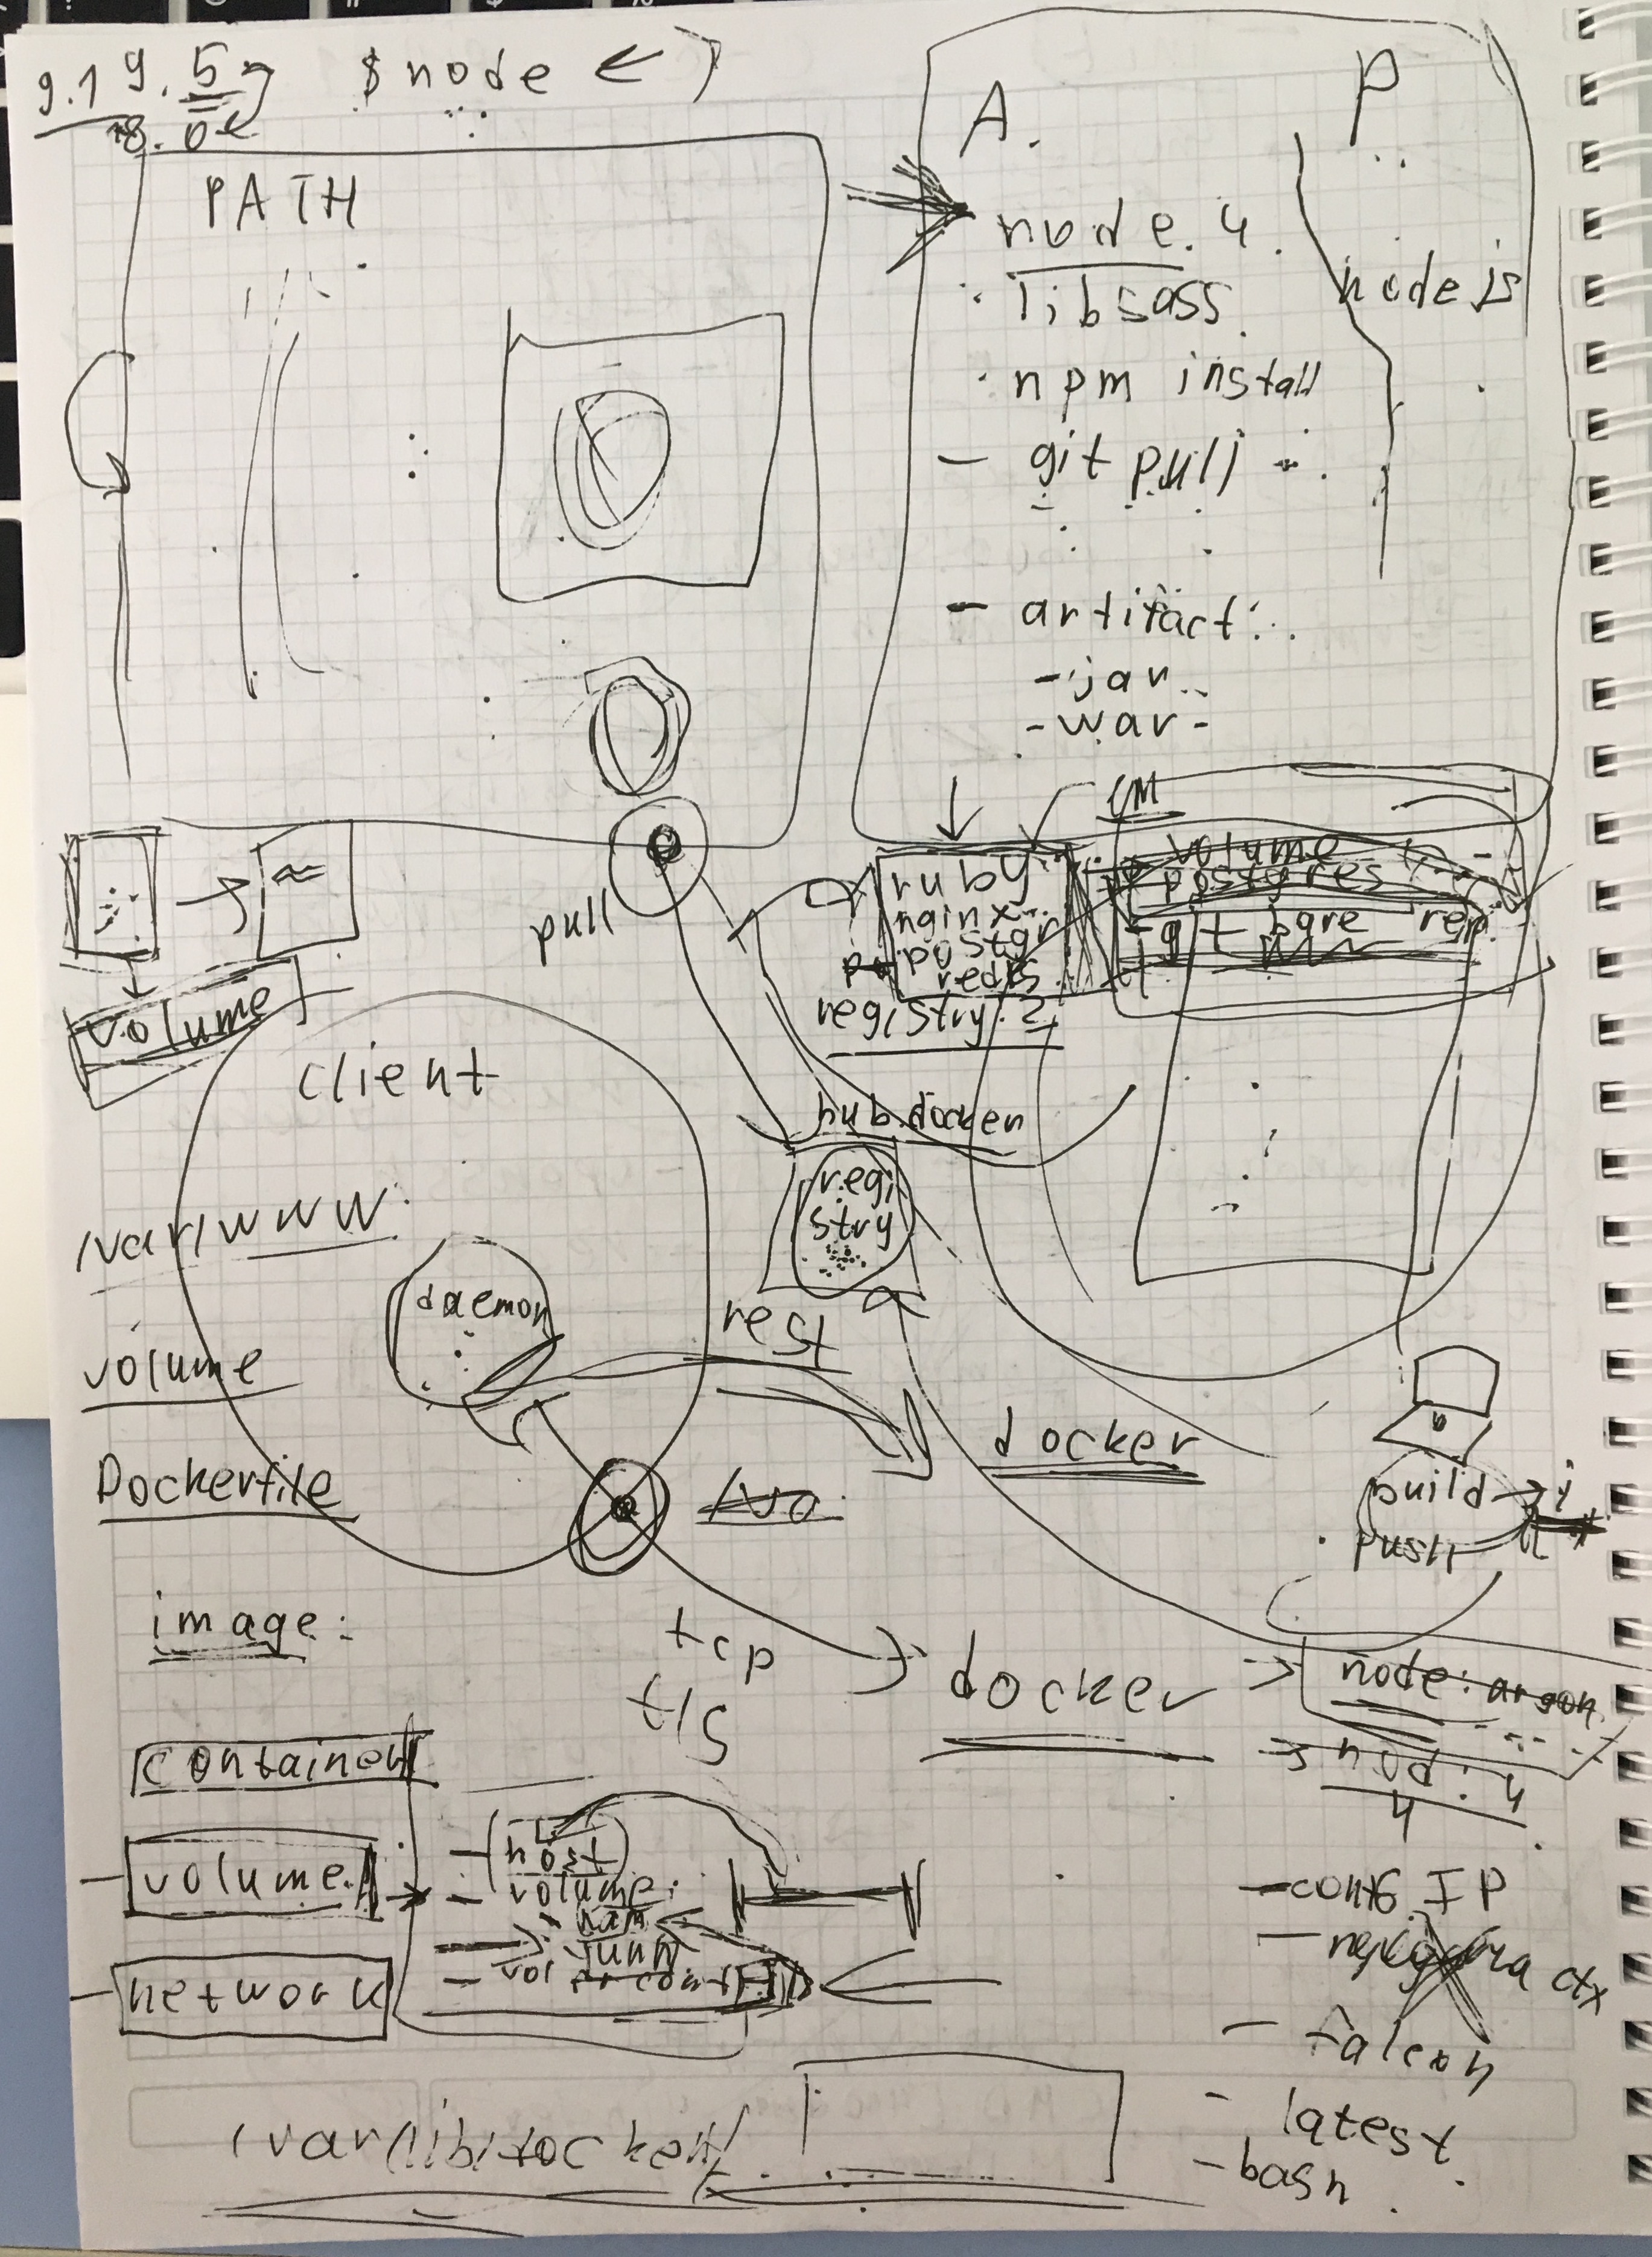 9.1.9.5
$ node
8.0
PATH
A.
P
node.4.
node js
libsass
npm install
- git pull
- artifact
- jar
- war -
VM
pull
ruby
nginx
postgr
redis
registry:2
volume
postgres
git bare rep
volume
client
hub.docker
regi
stry
/var/www
daemon
rest
volume
docker
Dockerfile
build
push
image:
tcp
tls
docker
node: argon
nod: 4
4
container
- volume
- host
- volume
- network
- IP
- falcon
- latest
- bash
/var/lib/docker/